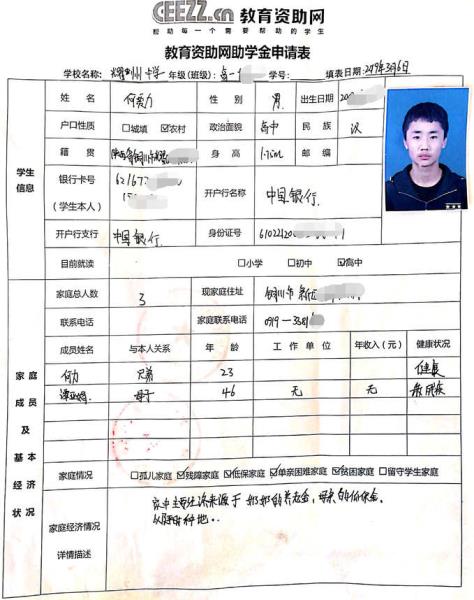 CEEZZ.cn 教育资助网
帮助每一个需要帮助的学生
教育资助网助学金申请表
学校名称: 中学 年级(班级): 高一 学号: 填表日期: 2019年3月6日
学生信息
姓名 何 力 性别 男 出生日期
户口性质 □城填 ☑农村 政治面貌 高中 民族 汉
籍贯 身高 1.75m 邮编
银行卡号 (学生本人) 62167 开户行名称 中国银行
开户支行 中国银行 身份证号
目前就读 □小学 □初中 ☑高中
家庭成员及基本经济状况
家庭总人数 3 现家庭住址 铜川市新区
联系电话 家庭联系电话 0919-
成员姓名 与本人关系 年龄 工作单位 年收入(元) 健康状况
何力 兄弟 23 健康
母子 46 无 无 残疾
家庭情况 □孤儿家庭 ☑残障家庭 ☑低保家庭 ☑单亲困难家庭 ☑贫困家庭 □留守学生家庭
家庭经济情况详情描述 家中主要经济来源于奶奶的养老金,母亲的低保金。
种地。